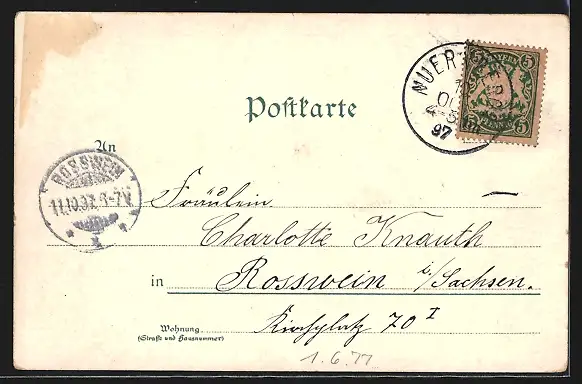 BAYERN
5 5
PFENNIG
NUERNBERG
OC
4-5
97
Postkarte
An
ROSSWEIN
11.10.97. 6-7V.
Fräulein
Charlotte Knauth
in Rosswein i/Sachsen.
Wohnung
(Straße und Hausnummer)
Kirchplatz 70 I
1.6.77